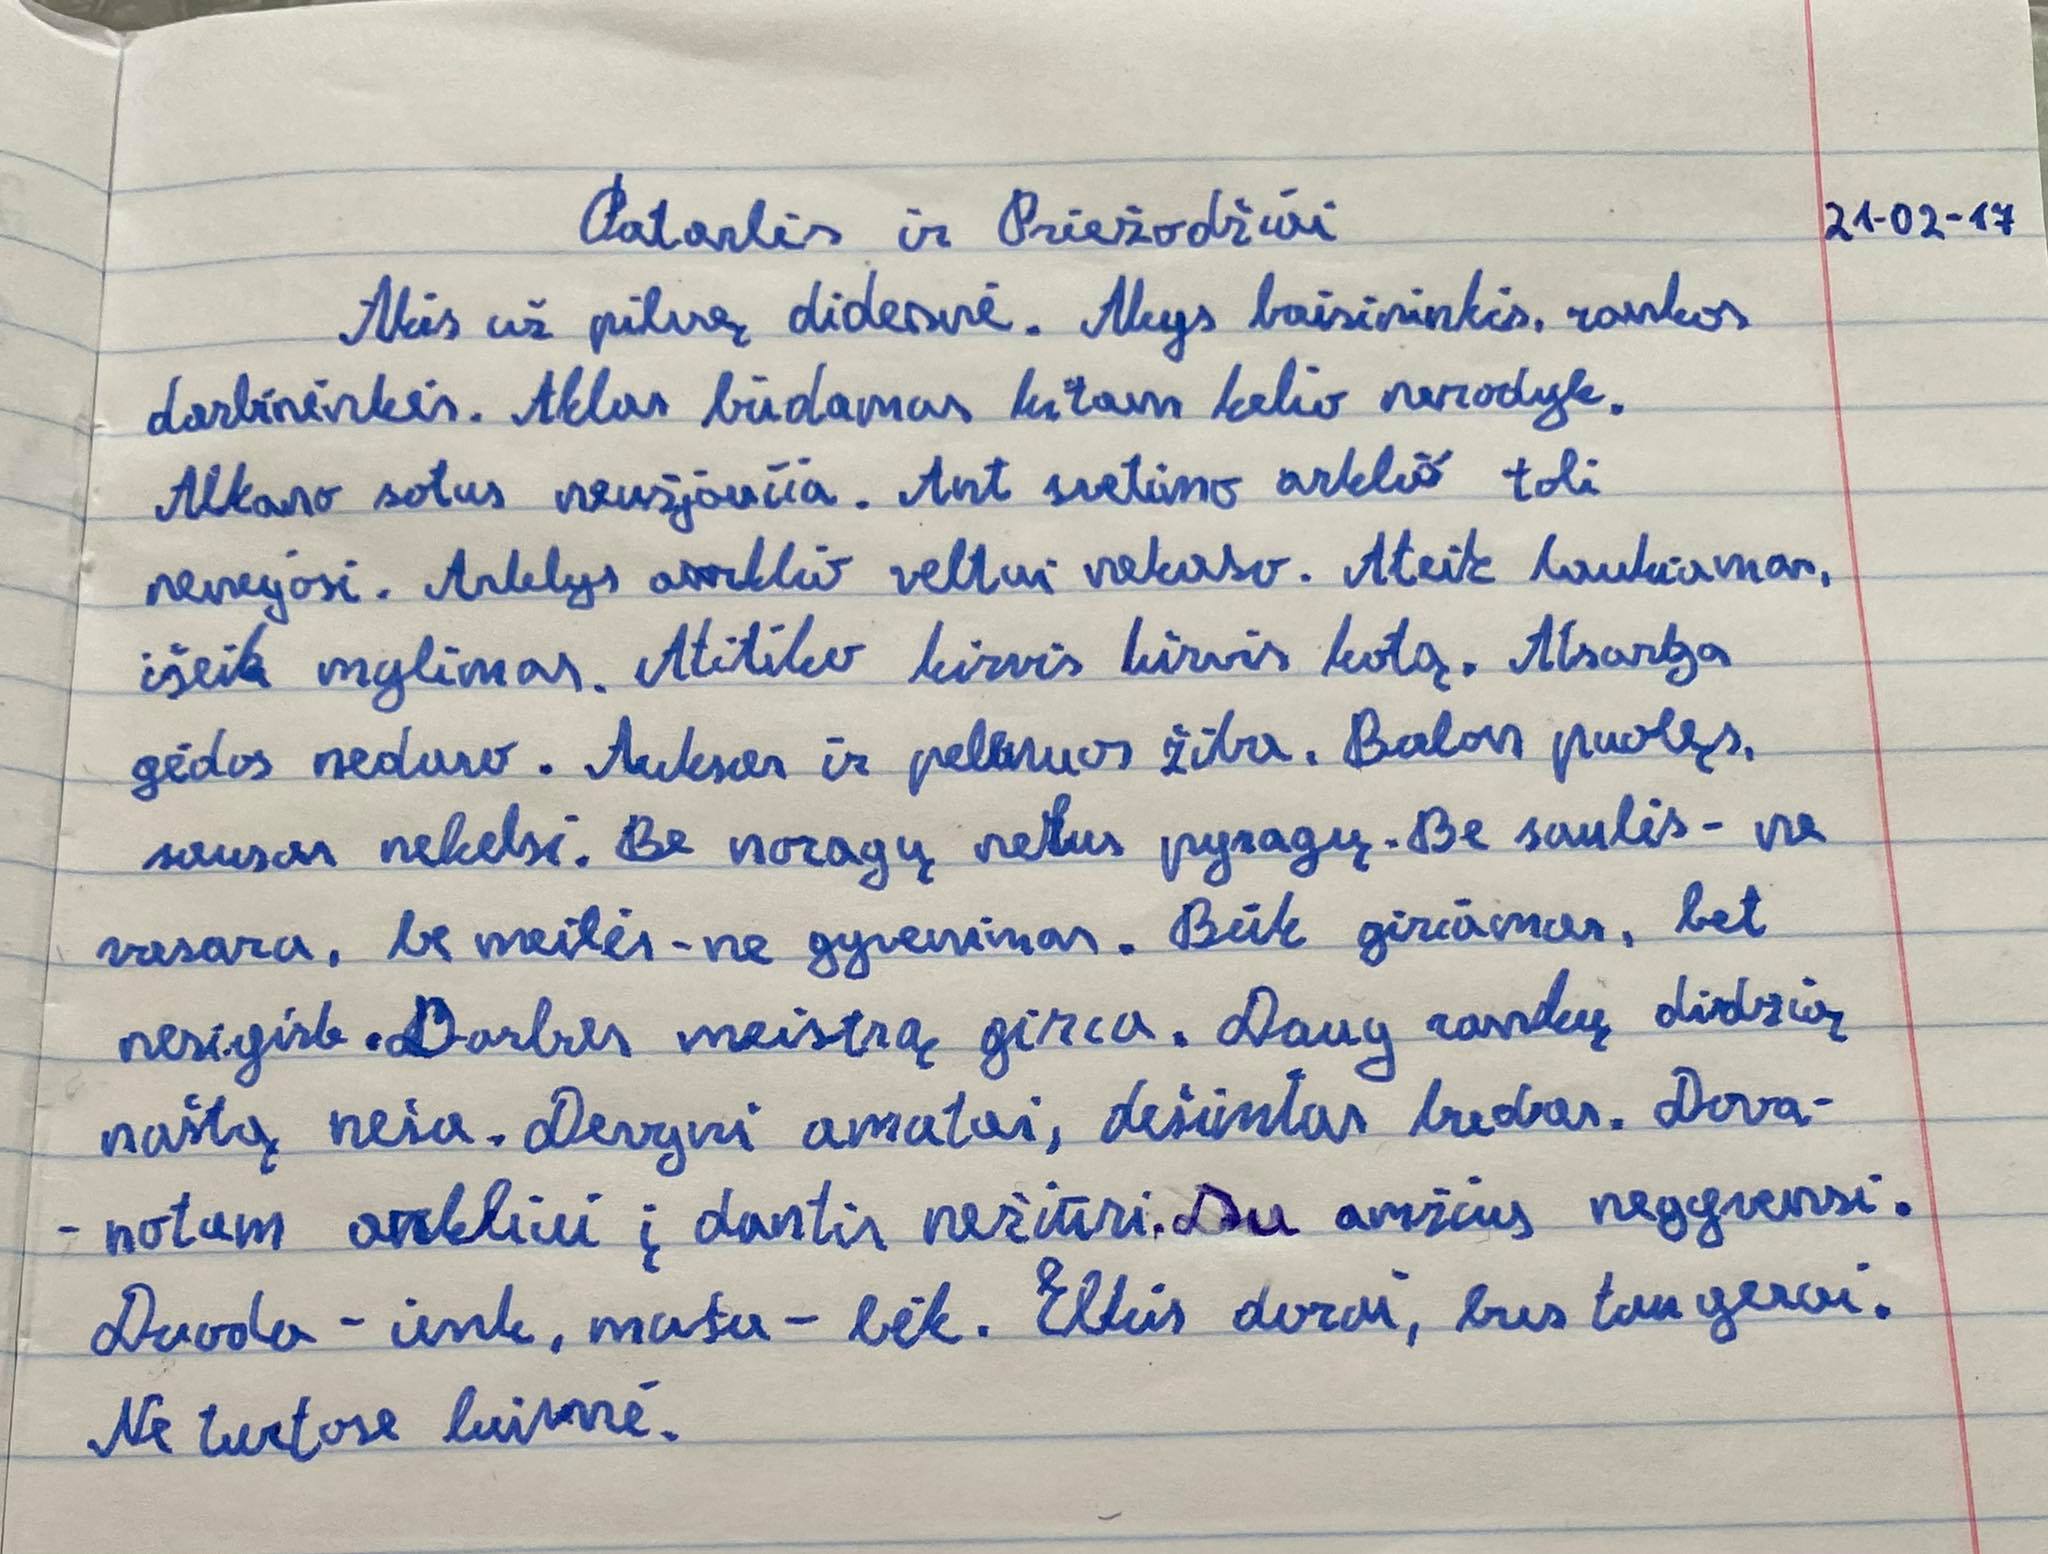 Patarlės ir Priežodžiai 21-02-17
Akis už pilvą didesnė. Akys baisininkės, rankos
darbininkės. Aklas būdamas kitam kelio nerodyk.
Alkano sotus neužjaučia. Ant svetimo arklio toli
nenujosi. Arklys arklio veltui nekaso. Ateik laukiamas,
išeik mylimas. Atitiko kirvis kirvis kotą. Atsarga
gėdos nedaro. Auksas ir pelenuos žiba. Balon puolęs,
sausas nekelsi. Be noragų nebus pyragų. Be saulės - ne
vasara, be meilės - ne gyvenimas. Būk giriamas, bet
nesigirk. Darbas meistrą giria. Daug rankų didžią
naštą neša. Devyni amatai, dešimtas badas. Dova-
- notam arkliui į dantis nežiūri. Du amžius negyvensi.
Duoda - imk, muša - bėk. Elkis dorai, bus tau gerai.
Ne turtose laimė.